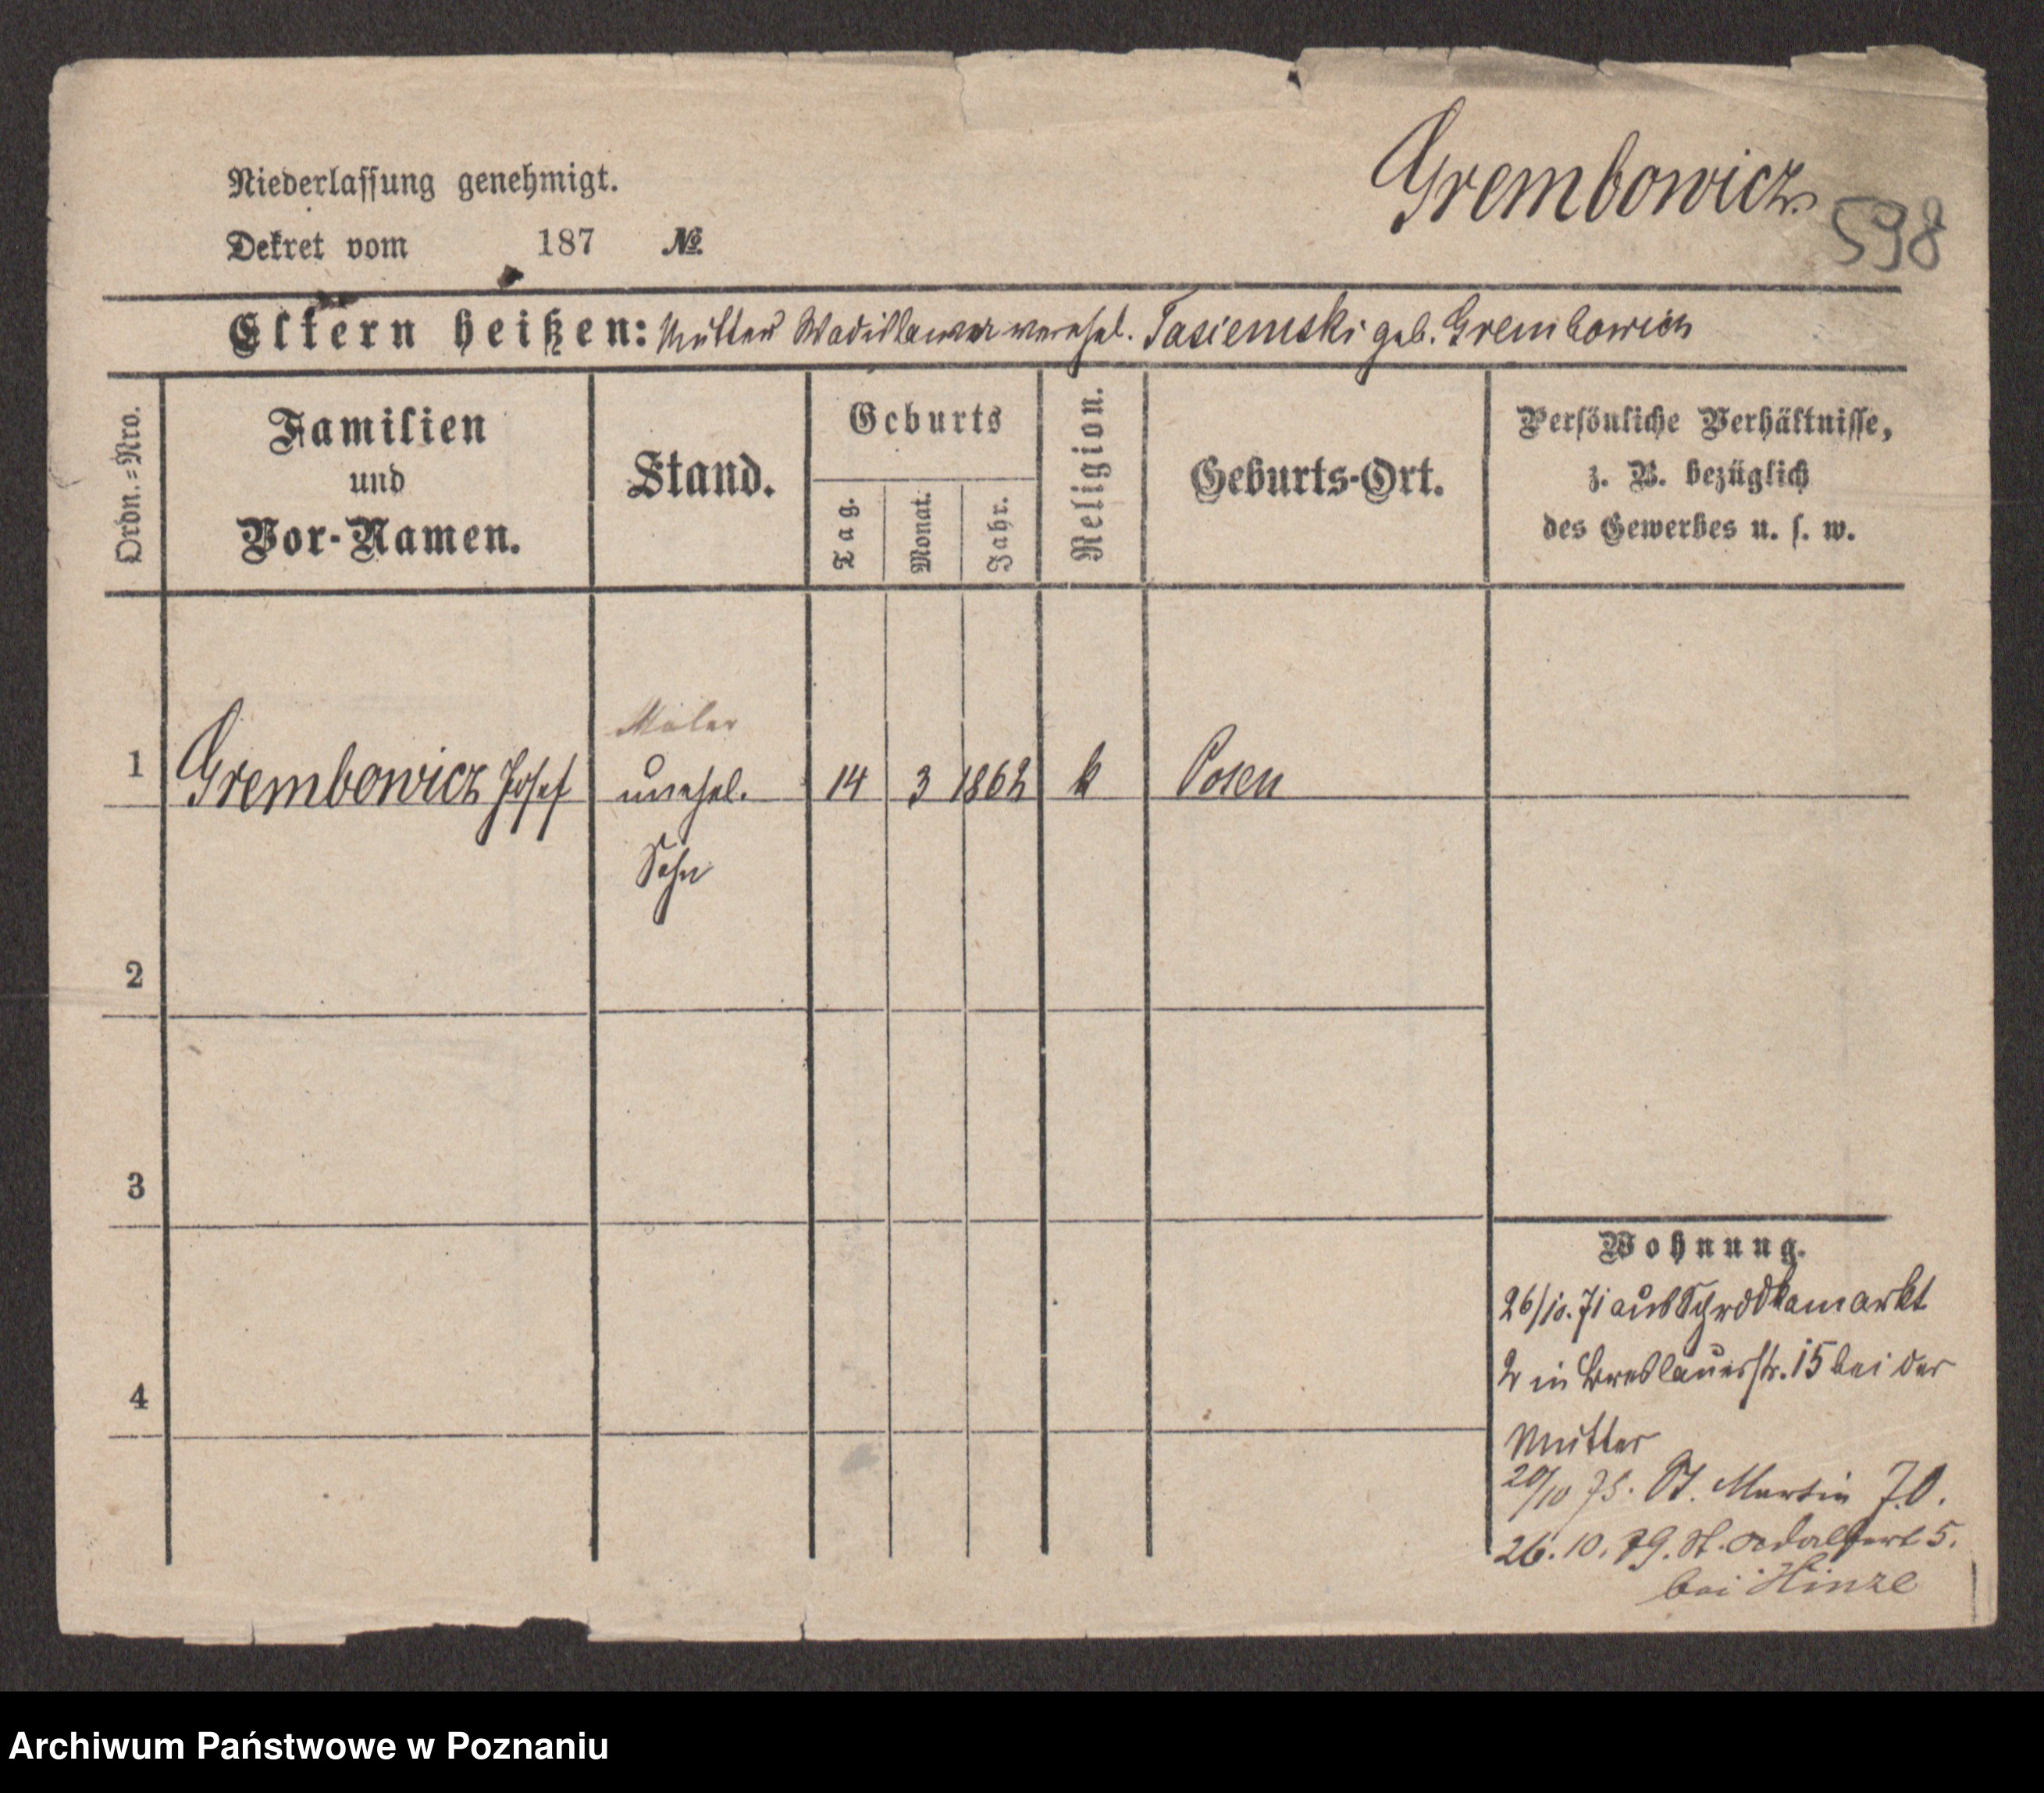 Niederlassung genehmigt.
Dekret vom 187 №
Grembowicz
598
Eltern heißen: Mutter Wadislawa verehel. Tasiemski geb. Grembowicz
Ordn.=Nro.
Familien
und
Vor-Namen.
Stand.
Geburts
Tag.
Monat.
Jahr.
Religion.
Geburts-Ort.
Persönliche Verhältnisse,
z. B. bezüglich
des Gewerbes u. s. w.
Maler
1 Grembowicz Josef unehel. 14 3 1862 k Posen
Sohn
2
3
4
Wohnung.
26/10. 71 aus Schrodkamarkt
2 in Breslauerstr. 15 bei der
Mutter
20/10 75. St. Martin 70.
26. 10. 79. St. Adalbert 5.
bei Hinze
Archiwum Państwowe w Poznaniu